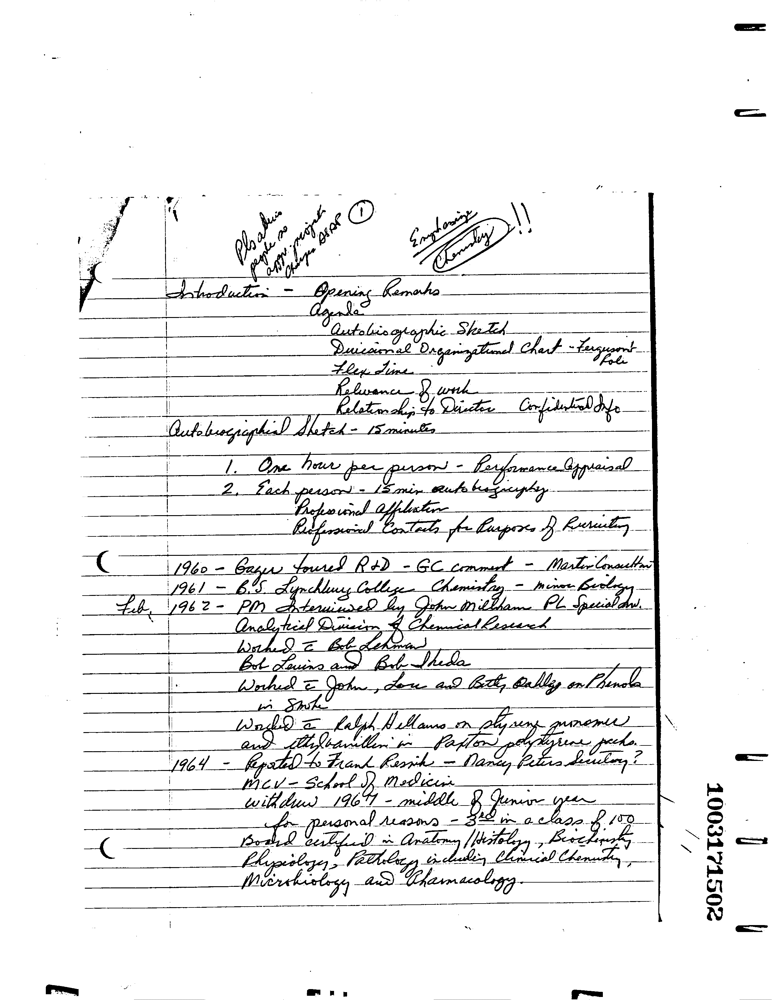 Pls advise
people no
appr. projects
charges
1
Emphasize
Chemistry !!
Introduction - Opening Remarks
Agenda
Autobiographic Sketch
Divisional Organizational Chart - Ferguson's
Role
Flex Time
Relevance of work
Relationship to Director Confidential Info
Autobiographical Sketch - 15 minutes
1. One hour per person - Performance Appraisal
2. Each person - 15 min autobiography
Professional Affiliation
Professional Contacts for Purposes of Recruiting
1960 - toured R&D - GC comment - Martin
1961 - B.S. Lynchburg College Chemistry - minor Biology
Feb. 1962 - PM Interviewed by John Millham PL Special Inv.
Analytical Division of Chemical Research
Worked c̄ Bob Lehman
Bob Levins and Bob Sheda
Worked c̄ John, and Betty on Phenols
in Smoke
Worked c̄ Ralph on styrene monomer
and ethylvanillin in Paxton polystyrene packs.
1964 - Reported to Frank Resnik - Nancy Peters Secretary?
MCV - School of Medicine
withdrew 1967 - middle of Junior year
for personal reasons - 3rd in a class of 100
Board certified in Anatomy/Histology, Biochemistry
Physiology, Pathology including Clinical Chemistry,
Microbiology and Pharmacology.
1003171502